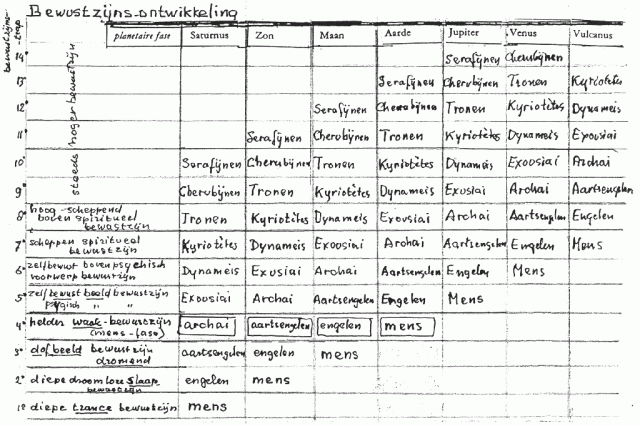 Bewustzijns-ontwikkeling
bewustzijns-trap
planetaire fase Saturnus Zon Maan Aarde Jupiter Venus Vulcanus
steeds hoger bewustzijn
14° Serafijnen Cherubijnen
13° Serafijnen Cherubijnen Tronen Kyriotètes
12° Serafijnen Cherubijnen Tronen Kyriotètes Dynameis
11° Serafijnen Cherubijnen Tronen Kyriotètes Dynameis Exousiai
10° Serafijnen Cherubijnen Tronen Kyriotètes Dynameis Exousiai Archai
9° Cherubijnen Tronen Kyriotètes Dynameis Exusiai Archai Aartsengelen
8° hoog-scheppend
boven spiritueel
bewustzijn Tronen Kyriotètes Dynameis Exousiai Archai Aartsengelen Engelen
7° scheppen spiritueel
bewustzijn Kyriotètes Dynameis Exousiai Archai Aartsengelen Engelen Mens
6° zelfbewust boven psychisch
voorwerp bewustzijn Dynameis Exusiai Archai Aartsengelen Engelen Mens
5° zelfbewust beeld bewustzijn
psychisch " " Exousiai Archai Aartsengelen Engelen Mens
4° helder waak-bewustzijn
(mens-fase) archai aartsengelen engelen mens
3° dof beeld bewustzijn
dromend aartsengelen engelen mens
2° diepe droomloze slaap
bewustzijn engelen mens
1° diepe trance bewustzijn mens